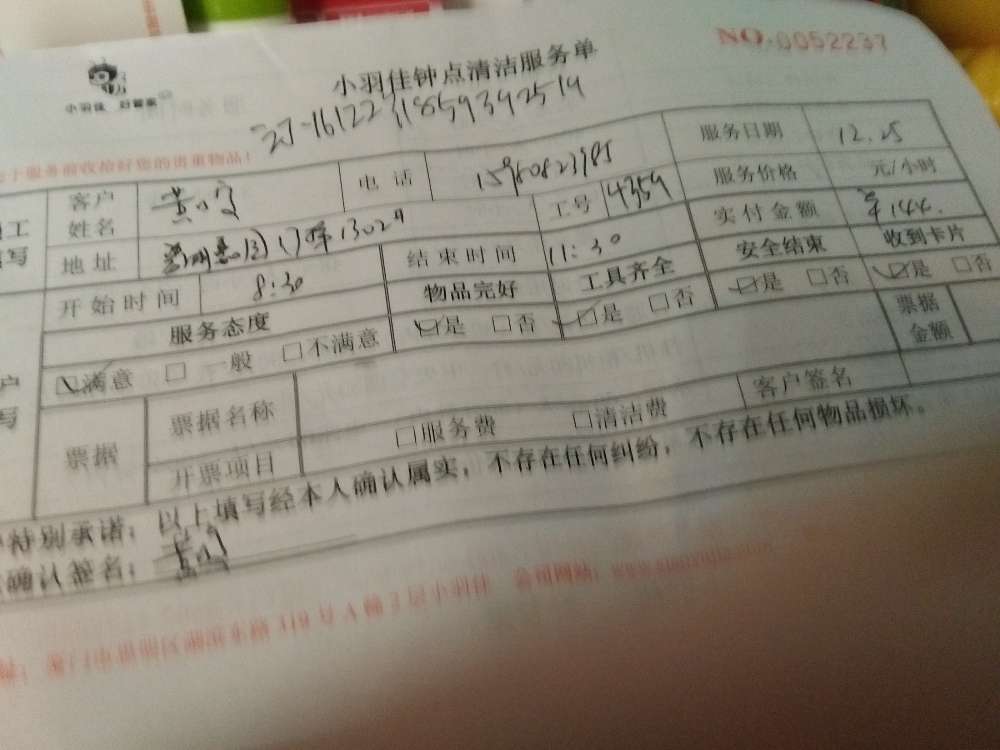 NO. 0052237
小羽佳 好管家
小羽佳钟点清洁服务单
于服务前收拾好您的贵重物品!
客户姓名 电话 服务日期 12.25
工号 4354 服务价格 元/小时
地址 1302 实付金额 144.
开始时间 8:30 结束时间 11:30
服务态度 物品完好 工具齐全 安全结束 收到卡片
满意 □一般 □不满意 是 □否 是 □否 是 □否 是 □否
票据 票据名称 票据金额
开票项目 □服务费 □清洁费 客户签名
特别承诺:以上填写经本人确认属实,不存在任何纠纷,不存在任何物品损坏。
确认签名:
厦门市思明区湖滨东路319号A幢3层小羽佳 公司网站: